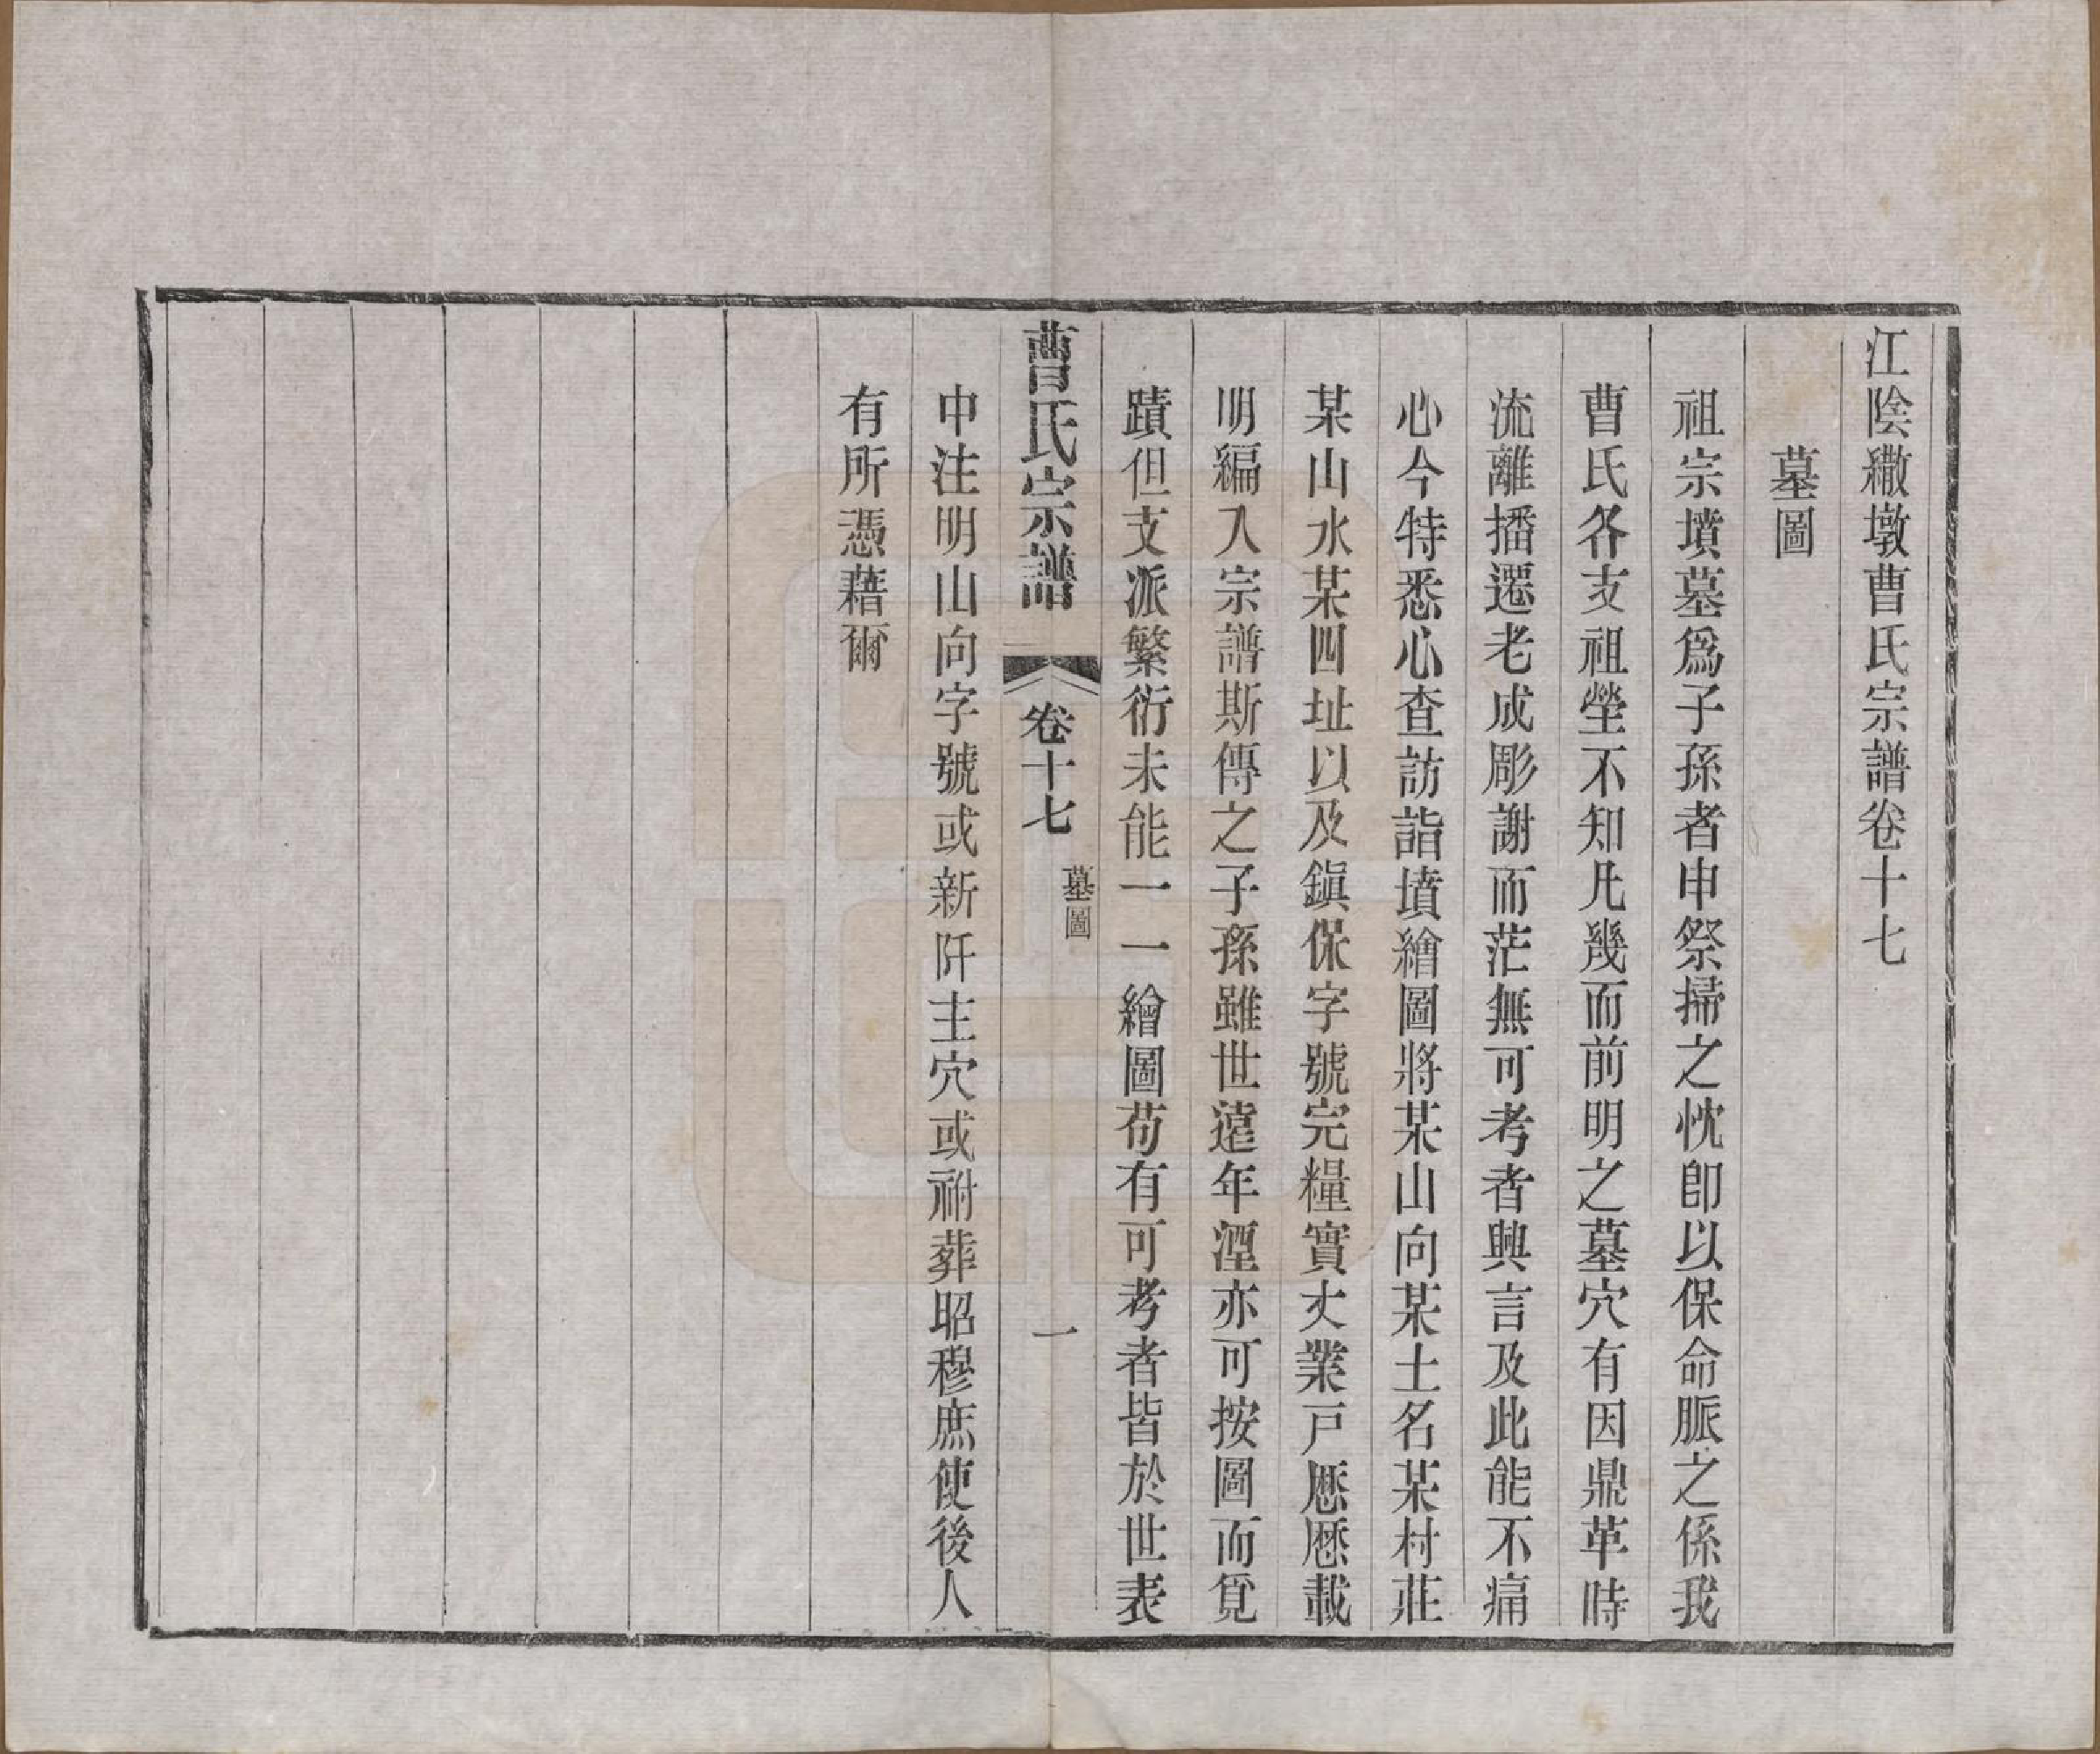 江陰繖墩曹氏宗譜卷十七
墓圖
祖宗墳墓爲子孫者申祭掃之忱卽以保命脈之係我
曹氏各支祖塋不知凡幾而前明之墓穴有因鼎革時
流離播遷老成彫謝而茫無可考者興言及此能不痛
心今特悉心查訪詣墳繪圖將某山向某土名某村莊
某山水某四址以及鎭保字號完糧實丈業戸厯厯載
明編入宗譜斯傳之子孫雖世遠年湮亦可按圖而覓
蹟但支派繁衍未能一一繪圖苟有可考者皆於世表
曹氏宗譜 卷十七 墓圖 一
中注明山向字號或新阡主穴或祔葬昭穆庶使後人
有所憑藉爾